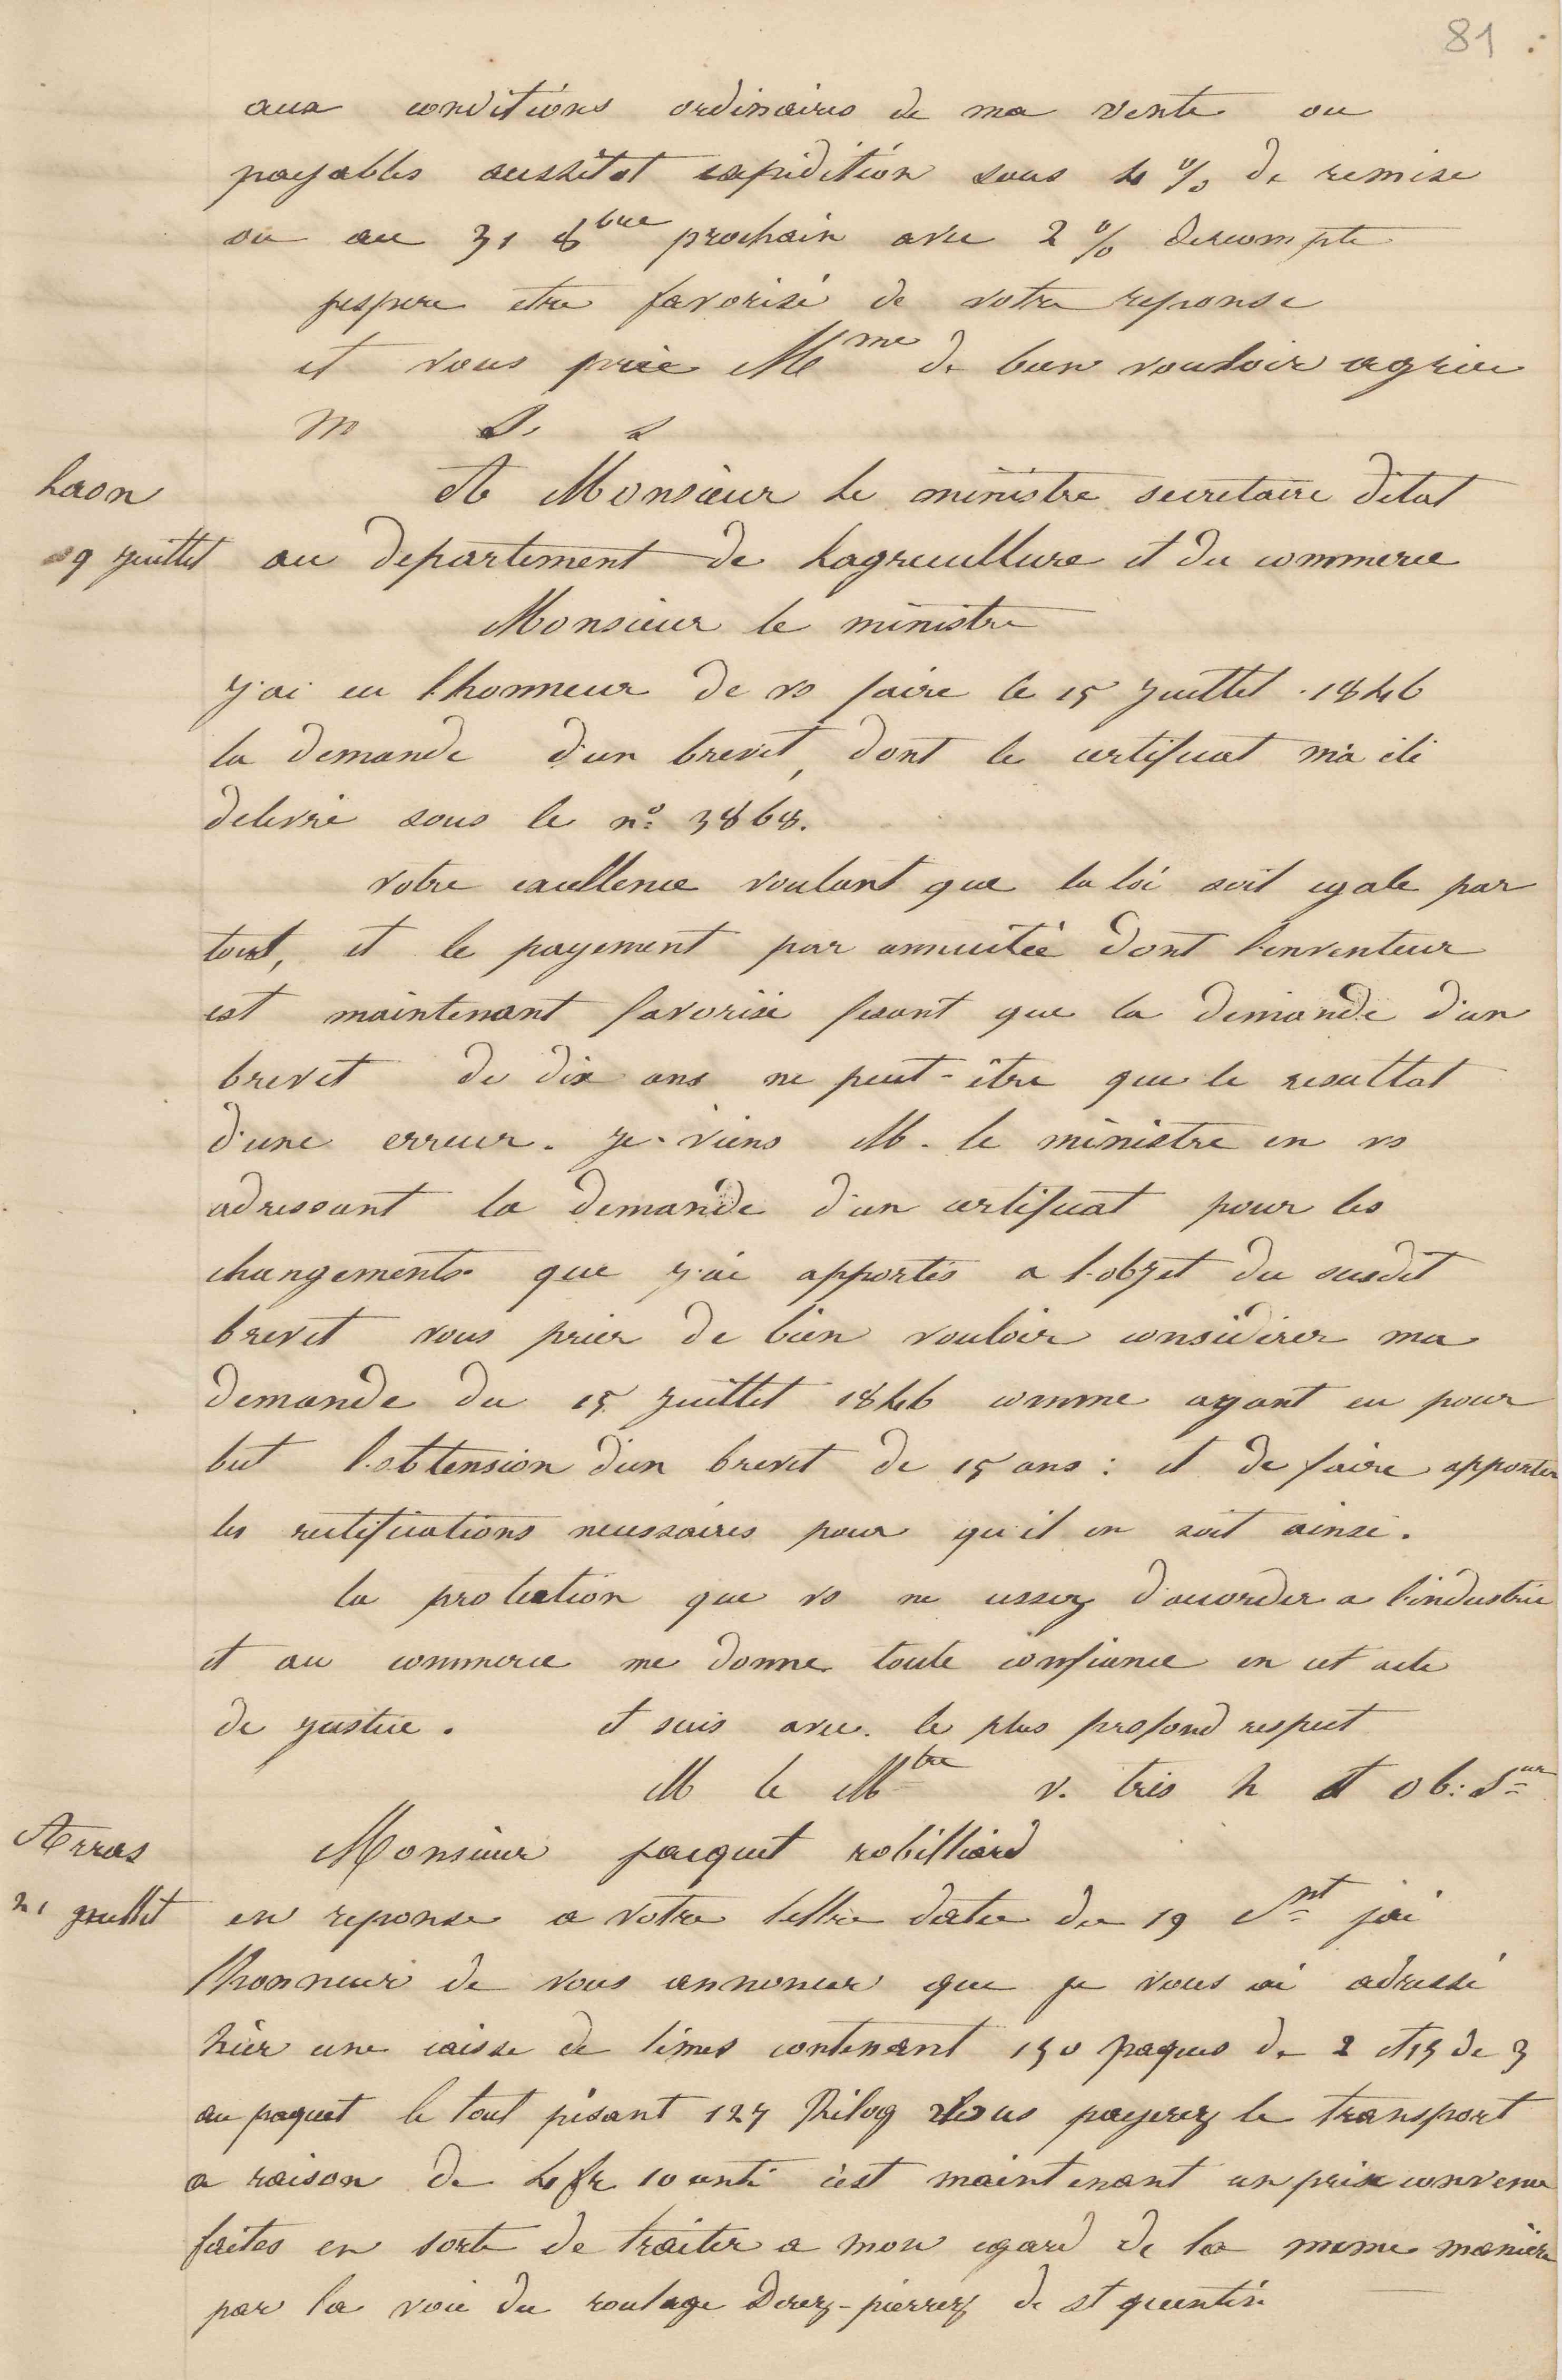 81
aux conditions ordinaires de ma vente ou
payables aussitot expedition sous 4 % de remise
ou au 31 8bre prochain avec 2 % descompte
jespere etre favorisé de votre reponse
et vous prie Mme de bien vouloir agrier
m S. s
Laon
A Monsieur le ministre secretaire d'etat
19 juillet au departement de Lagriculture et du commerce
Monsieur le ministre
j'ai eu l'honneur de vs faire le 15 juillet 1846
la demande d'un brevet, dont le certificat m'a été
delivré sous le no 3868.
votre excellence voulant que la loi soit egale par
tout, et le payement par annuitée dont l'inventeur
est maintenant favorisé fesant que la demande d'un
brevet de dix ans ne peut-être que le resultat
d'une erreur. je viens M. le ministre en vs
adressant la demande d'un certificat pour les
changements que j'ai apportés a l'objet du susdit
brevet vous prier de bien vouloir considérer ma
demande du 15 juillet 1846 comme ayant eu pour
but l'obtension d'un brevet de 15 ans : et de faire apporter
les rectifications necessaires pour qu'il en soit ainsi.
la protection que vs ne cessez d'accorder a l'industrie
et au commerce me donne toute confiance en cet acte
de justice. et suis avec le plus profond respect
M le Mtre v. très h et ob: Sur
Arras
Monsieur pacquet robilliard
21 juillet en reponse a votre lettre datée du 19 Snt jai
lhonneur de vous annoncer que je vous ai adressé
hier une caisse de limes contenant 150 paques de 2 et 15 de 3
au paquet le tout pésant 127 Kilog vous payerez le transport
a raison de 4 fr 10 cent c'est maintenant un prix convenu
faites en sorte de traiter a mon egard de la meme maniere
par la voie du roulage Derez-pierrez de st quentin